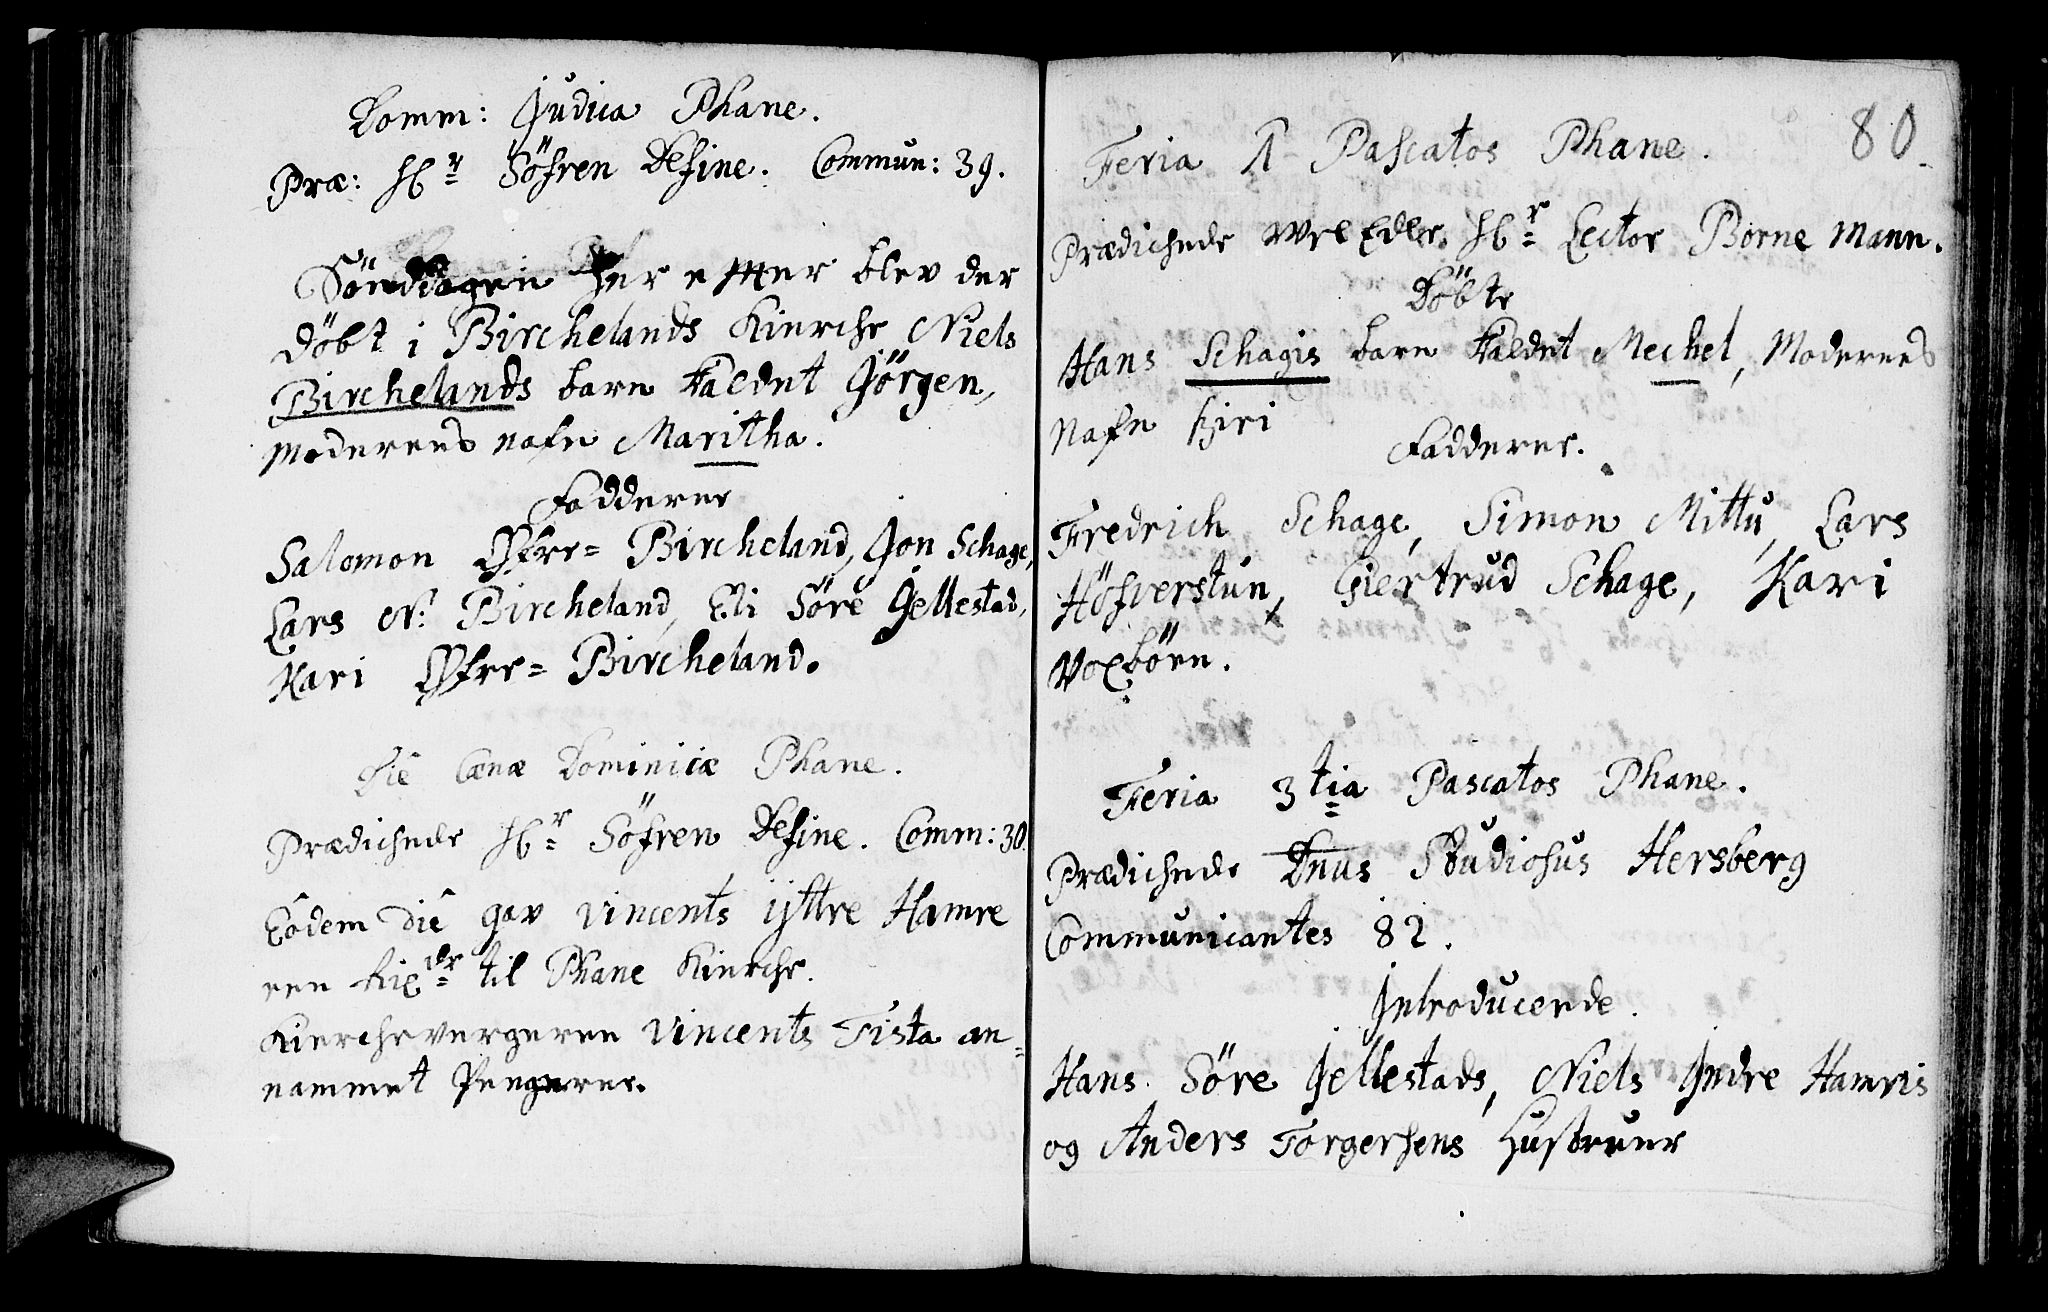 Domm: Judica Phane.
Præ: Hr Söfren Define. Commun: 39.
Söndagen her efter blev der
döbt i Birchelands Kierche Niels
Birchelands barn kaldet Jörgen,
Moderens nafn Maritha.
Fadderne
Salomon Øfre= Bircheland, Jon Schage,
Lars N: Bircheland, Eli Söre Jellestad,
Kari Øfre= Bircheland.
Die Cænæ Dominicæ Phane.
Prædichede Hr Söfren Define. Comm: 30.
Eodem die gav Vincents ijttre Hamre
een Rixdr til Phane Kierche.
Kierchevergeren Vincents Tista an=
nammet Pengerne.
80.
Feria 1 Pascatos Phane.
Prædichede WelEdle Hr Lector Borne mann.
Döbte
Hans Schagis barn kaldet Mechel, Moderens
Nafn Giri
Fadderne.
Fredrich Schage, Simon Mittu, Lars
Höfverstun, Giertrud Schage, Kari
Voxbörn.
Feria 3tia Pascatos Phane.
Prædichede Dnus Studiosus Hersberg
Communicantes 82.
Introducerede.
Hans Söre Jellestads, Niels Indre Hamris
og Anders Torgersens Hustruer